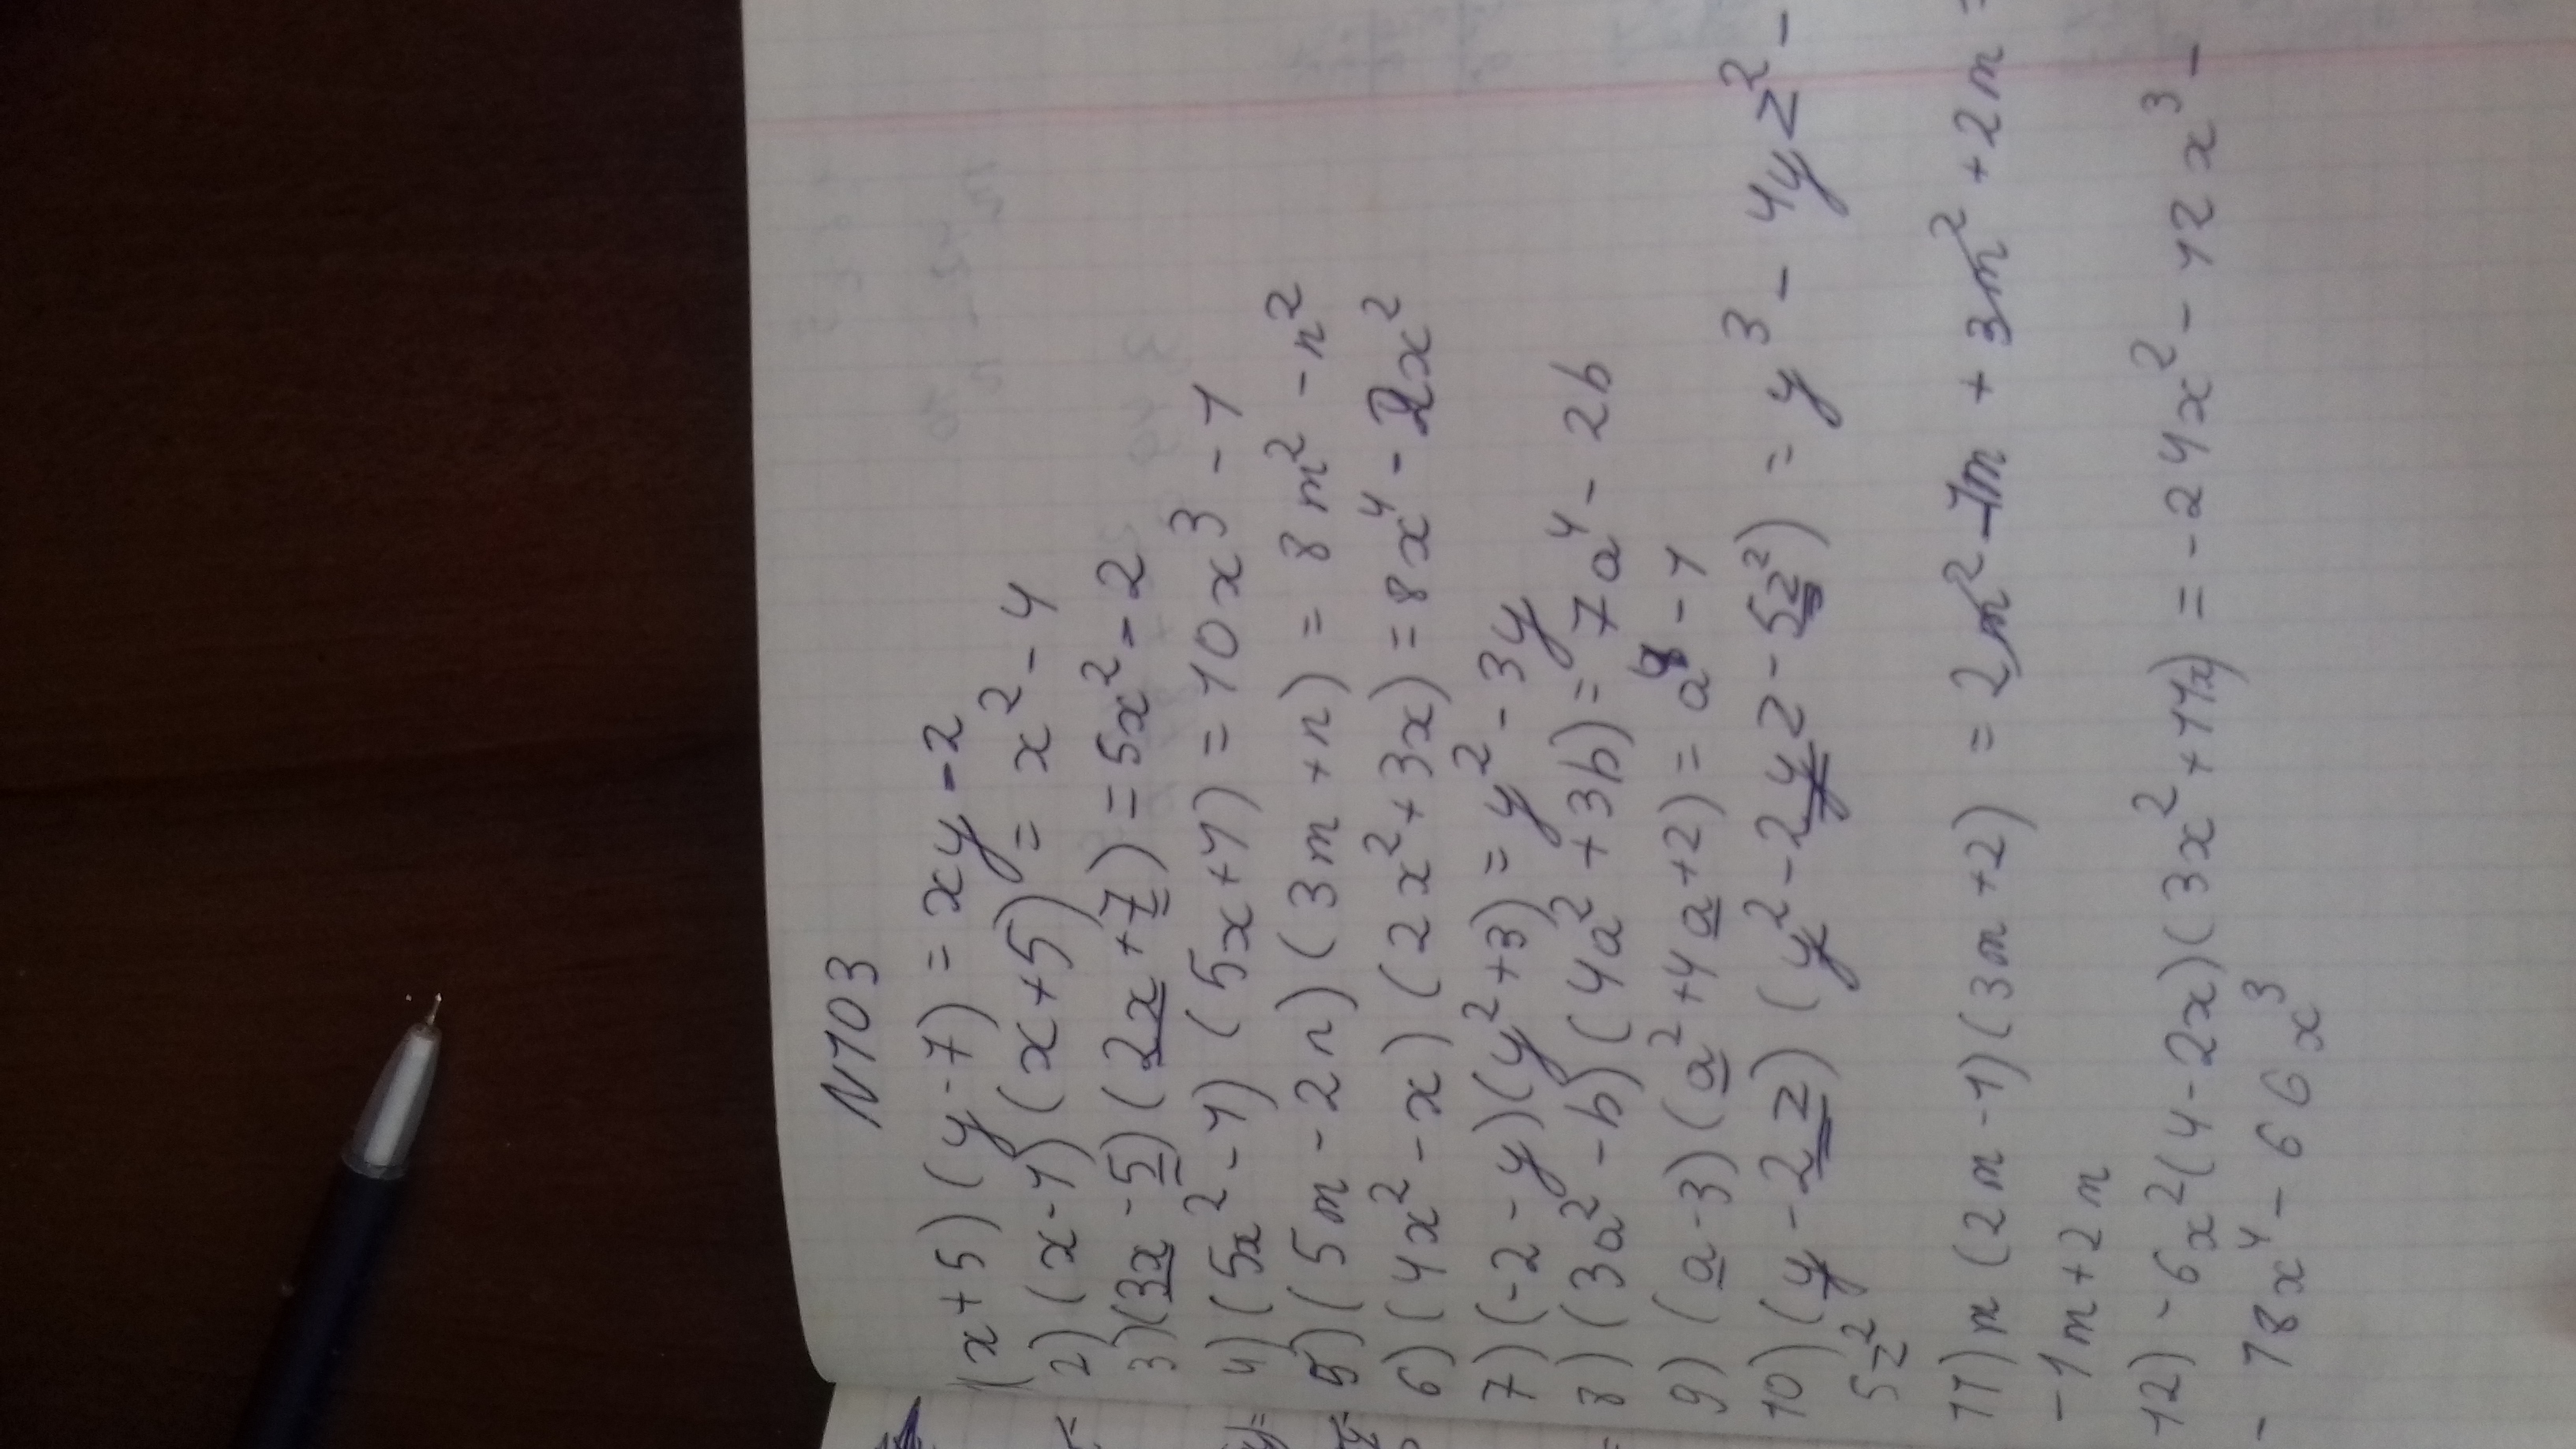 N103
(x+5)(y-7)=xy-2
2)(x-1)(x+5)=x²-4
3)(3x-5)(2x+7)=5x²-2
4)(5x²-1)(5x+1)=10x³-1
5)(5m-2n)(3m+n)=8m²-n²
6)(4x²-x)(2x²+3x)=8x⁴-2x²
7)(-2-y)(y²+3)=y²-3y
8)(3a²-b)(4a²+3b)=7a⁴-2b
9)(a-3)(a²+4a+2)=a⁴-1
10)(y-2z)(y²-2yz-5z²)=y³-4yz²-
5z²
11)m(2m-1)(3m+2)=2m²-1m+3m²+2m=
-1m+2m
12)-6x²(4-2x)(3x²+11x)=-24x²-12x³-
-18x⁴-66x³